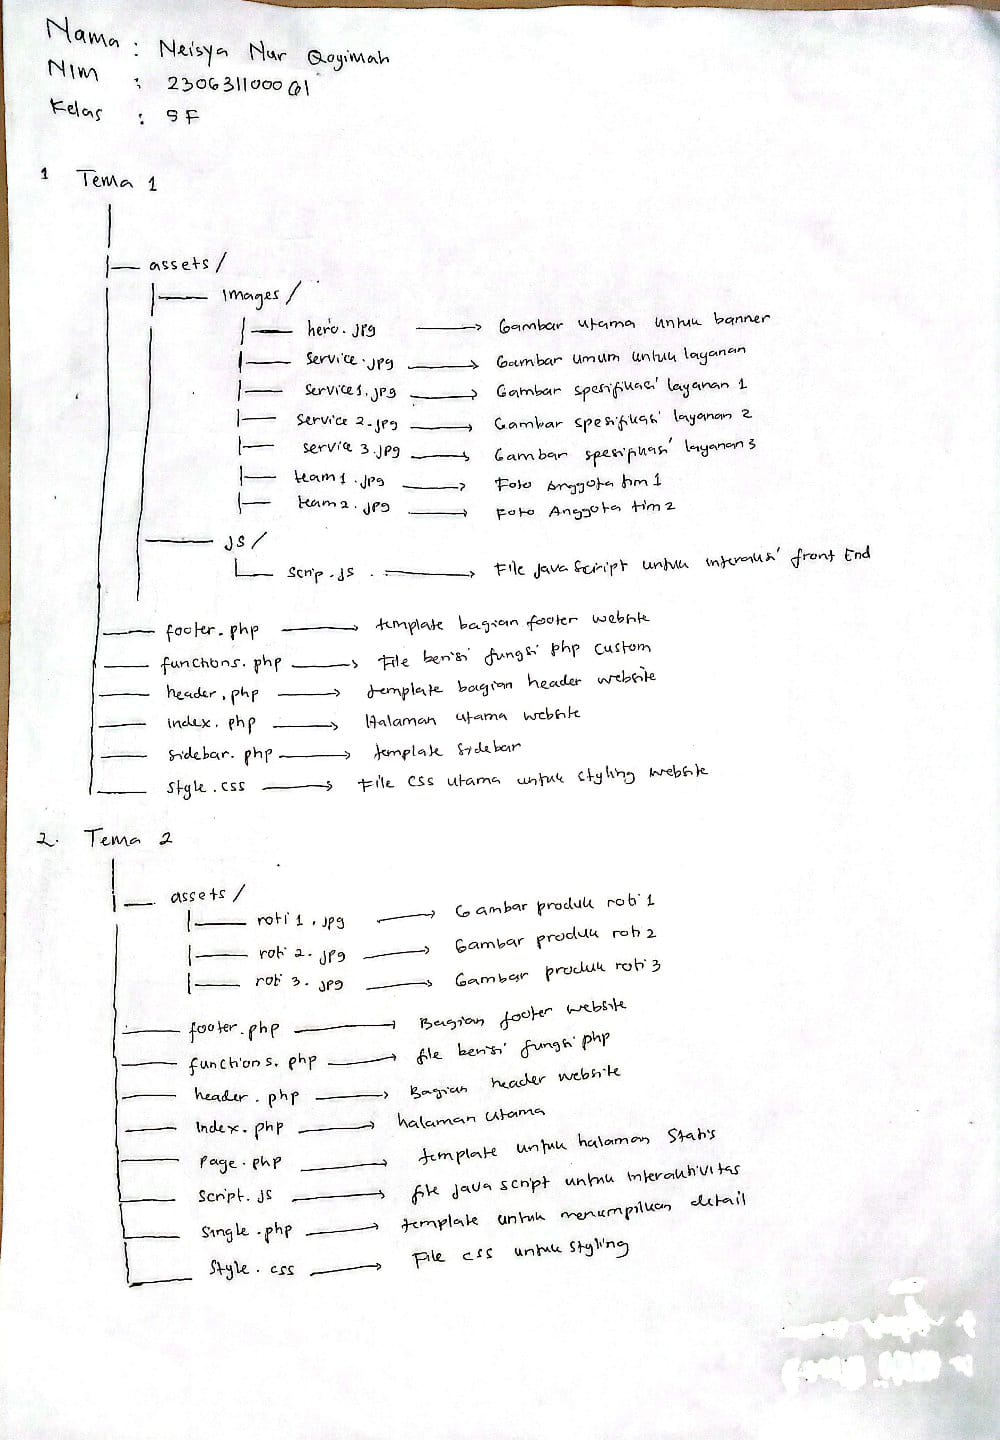 Nama : Neisya Nur Qoyimah
NIM : 230631100061
Kelas : 5F
1 Tema 1
assets/
Images/
hero.jpg → Gambar utama untuk banner
service.jpg → Gambar umum untuk layanan
service1.jpg → Gambar spesifikasi layanan 1
service 2.jpg → Gambar spesifikasi layanan 2
service 3.jpg → Gambar spesifikasi layanan 3
team1.jpg → Foto Anggota tim 1
team2.jpg → Foto Anggota tim 2
JS/
Scrip.JS → File Java Script untuk interaksi front End
footer.php → template bagian footer website
functions.php → File berisi fungsi php custom
header.php → template bagian header website
index.php → Halaman utama website
sidebar.php → template sidebar
style.css → File css utama untuk styling website
2. Tema 2
assets/
roti 1.jpg → Gambar produk roti 1
roti 2.jpg → Gambar produk roti 2
roti 3.jpg → Gambar produk roti 3
footer.php → Bagian footer website
functions.php → file berisi fungsi php
header.php → Bagian header website
Index.php → halaman utama
Page.php → template untuk halaman Statis
Script.JS → file Java script untuk interaktivitas
Single.php → template untuk menampilkan detail
Style.css → File css untuk styling